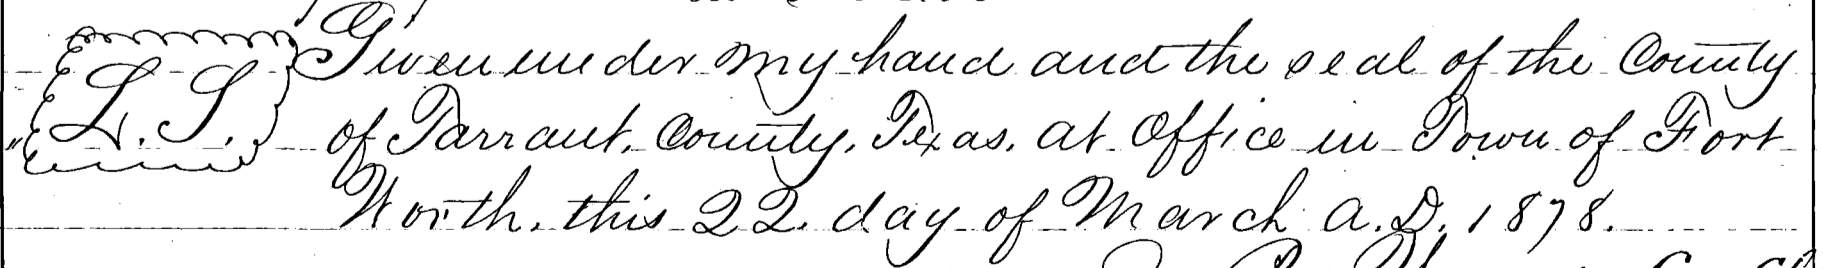 L. S. Given under my hand and the seal of the County
of Tarrant, County, Texas, at Office in Town of Fort
Worth, this 22 day of March A.D. 1878.